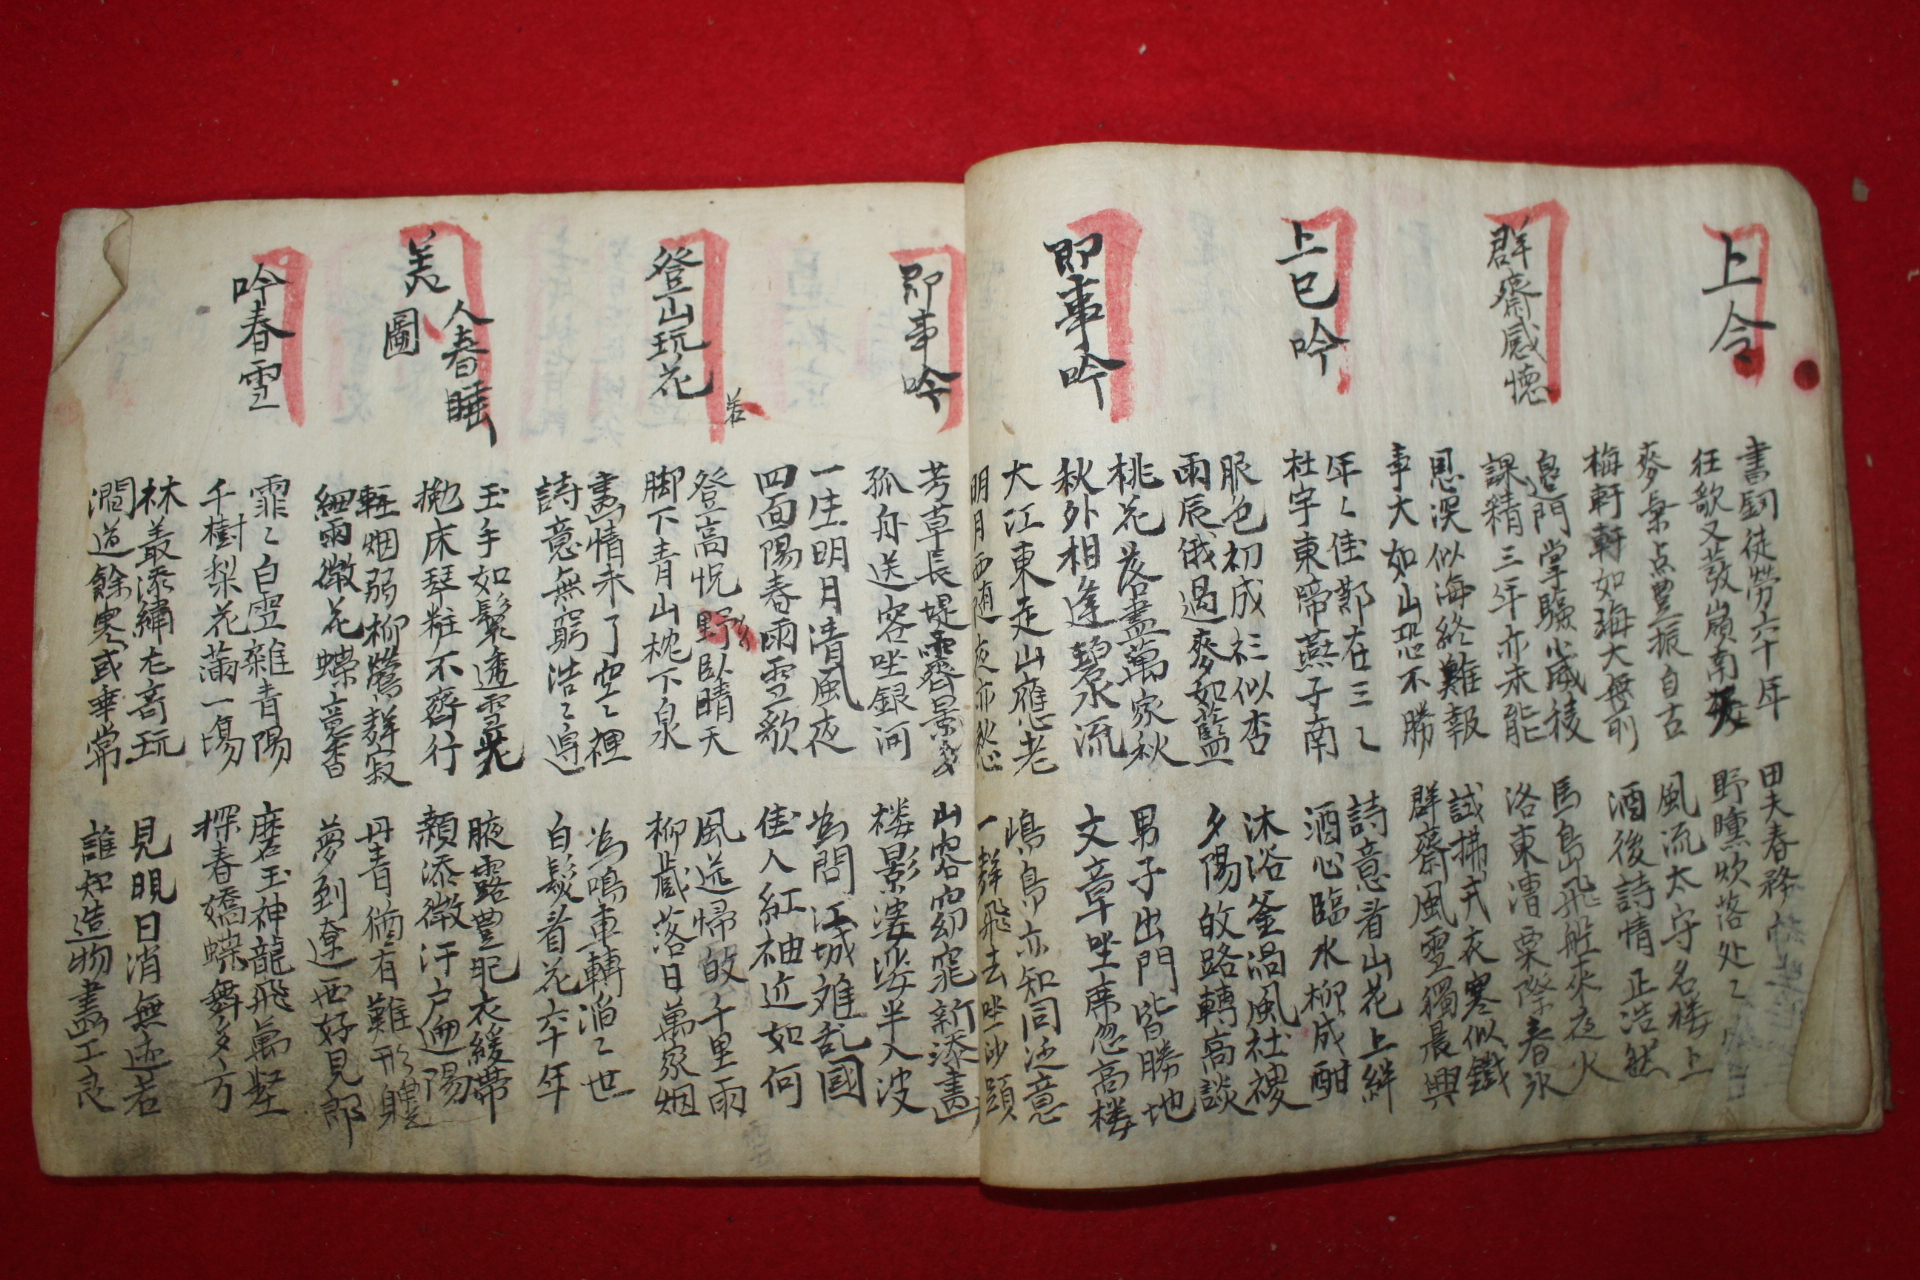 上仝
書劒徒勞六十年
田夫春務
狂歌又發嶺南
野曛炊落处〻
麥氣点豊振自古
風流太守名楼上
梅軒軒如海大無前
酒後詩情正浩然
群齋感德
馬島飛船來夜火
課精三年亦未能
洛東漕粟際春氷
恩深似海終難報
試拂戎衣寒似鐵
事大如山恐不勝
群齋風雪獨晨興
上巳吟
年〻佳節在三〻
詩意看山花上絆
杜宇東啼燕子南
酒心臨水柳成酣
服色初成衫似杏
沐浴釜渦風社禊
雨辰俄過麥如藍
夕陽㱕路轉高談
即事吟
桃花落盡萬家秋
男子出門皆勝地
秋外相逢碧水流
文章坐席忽高楼
大江東走山應老
鳴鳥亦知同泛意
明月西通夜亦愁
一群飛去坐沙頭
即事吟
芳草長堤霽景
山容窈窕新添畵
孤舟送客坐銀河
楼影婆娑半入波
一生明月清風夜
為問江城雖乱國
四面陽春雨雪歌
佳人紅袖近如何
登山玩花
登高怳 野臥晴天
風送帰㱕千里雨
脚下青山枕下泉
柳藏落日萬家烟
畵情未了空〻裡
為鳴車轉滔〻世
詩意無窮浩〻邊
白髮看花六十年
美人春睡圖
玉手如鬟透雪光
腋露豊肥衣緩帶
拋床琴粧不齊行
頰添微汗户迎陽
輕烟弱柳鶯群寂
丹青猶有難形軆
細雨微花蝶意香
夢到遼西好見郎
吟春雪
霏〻白雪雜青陽
磨玉神龍飛萬壑
千樹梨花滿一場
探春嬌蝶舞多方
林叢添繡尤奇玩
見晛日消無迹若
澗道餘寒或車常
誰知造物畵工良